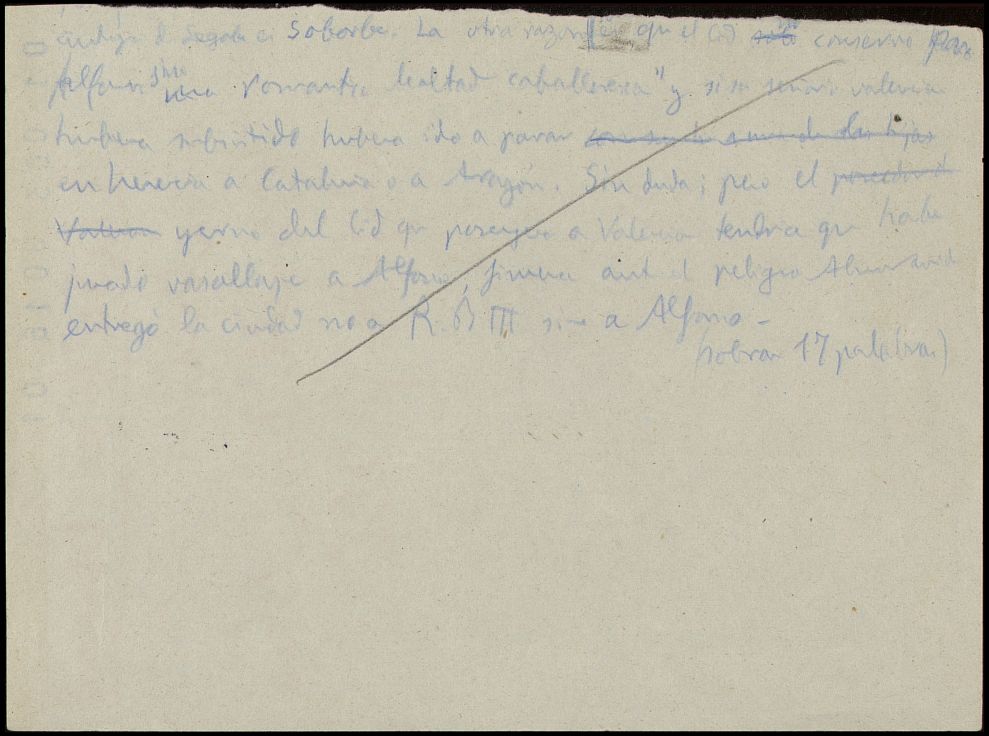 antigua de Segobi es Soborbe. La otra razon es que el Cid solo conservo para
Alfonso sino una romantica lealtad caballeresca" y si su señorio valencia
hubiera subsistido hubiera ido a parar con su de a una de las hijas
en herencia a Cataluña o a Aragón. Sin duda; pero el
Valencia yerno del Cid que poseyera a Valencia tendria que haber
jurado vasallaje a Alfonso, Jimena ante el peligro Almoravid
entregó la ciudad no a R. B III sino a Alfonso -
(sobran 17 palabras)